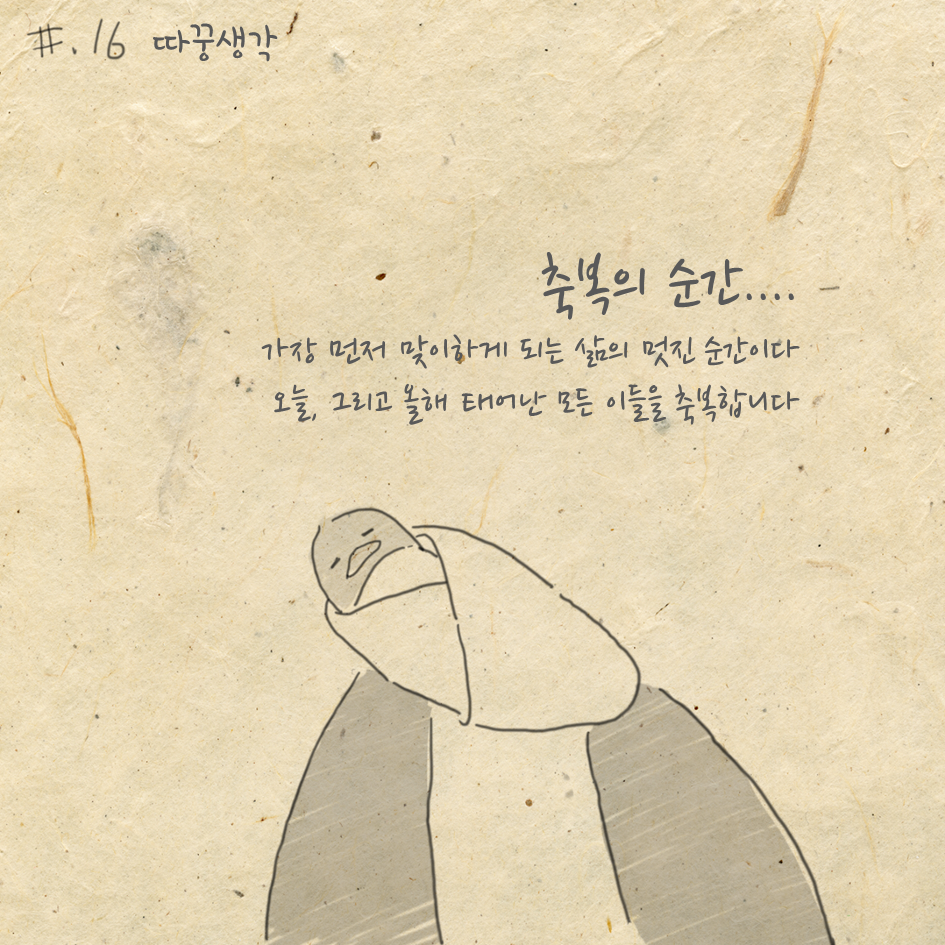 #.16 따꿍생각
축복의 순간....
가장 먼저 맞이하게 되는 삶의 멋진 순간이다
오늘, 그리고 올해 태어난 모든 이들을 축복합니다